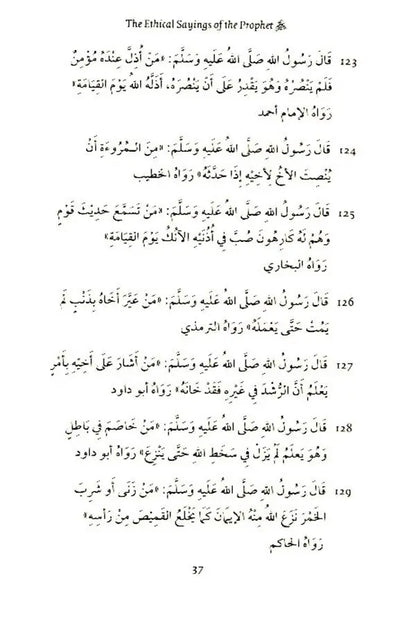 The Ethical Sayings of the Prophet ﷺ
123 قَالَ رَسُولُ اللهِ صَلَّى اللهُ عَلَيْهِ وَسَلَّمَ: «مَنْ أُذِلَّ عِنْدَهُ مُؤْمِنٌ
فَلَمْ يَنْصُرْهُ وَهُوَ يَقْدِرُ عَلَى أَنْ يَنْصُرَهُ، أَذَلَّهُ اللهُ يَوْمَ القِيَامَةِ»
رَوَاهُ الإمام أحمد
124 قَالَ رَسُولُ اللهِ صَلَّى اللهُ عَلَيْهِ وَسَلَّمَ: «مِنَ الـمُرُوءَةِ أَنْ
يُنْصِتَ الأَخُ لِأَخِيْهِ إِذَا حَدَّثَهُ» رَوَاهُ الخطيب
125 قَالَ رَسُولُ اللهِ صَلَّى اللهُ عَلَيْهِ وَسَلَّمَ: «مَنْ تَسَمَّعَ حَدِيْثَ قَوْمٍ
وَهُمْ لَهُ كَارِهُونَ صُبَّ فِي أُذُنَيْهِ الآنُكُ يَوْمَ القِيَامَةِ»
رَوَاهُ البخاري
126 قَالَ رَسُولُ اللهِ صَلَّى اللهُ عَلَيْهِ وَسَلَّمَ: «مَنْ عَيَّرَ أَخَاهُ بِذَنْبٍ لَمْ
يَمُتْ حَتَّى يَعْمَلَهُ» رَوَاهُ الترمذي
127 قَالَ رَسُولُ اللهِ صَلَّى اللهُ عَلَيْهِ وَسَلَّمَ: «مَنْ أَشَارَ عَلَى أَخِيْهِ بِأَمْرٍ
يَعْلَمُ أَنَّ الرُّشْدَ فِي غَيْرِهِ فَقَدْ خَانَهُ» رَوَاهُ أبو داود
128 قَالَ رَسُولُ اللهِ صَلَّى اللهُ عَلَيْهِ وَسَلَّمَ: «مَنْ خَاصَمَ فِي بَاطِلٍ
وَهُوَ يَعلَمُ لَمْ يَزَلْ فِي سَخَطِ اللهِ حَتَّى يَنْزِعَ» رَوَاهُ أبو داود
129 قَالَ رَسُولُ اللهِ صَلَّى اللهُ عَلَيْهِ وَسَلَّمَ: «مَنْ زَنَى أَو شَرِبَ
الخَمْرَ نَزَعَ اللهُ مِنْهُ الإِيمَانَ كَمَا يَخْلَعُ القَمِيْصَ مِنْ رَأسِهِ»
رَوَاهُ الحاكم
37